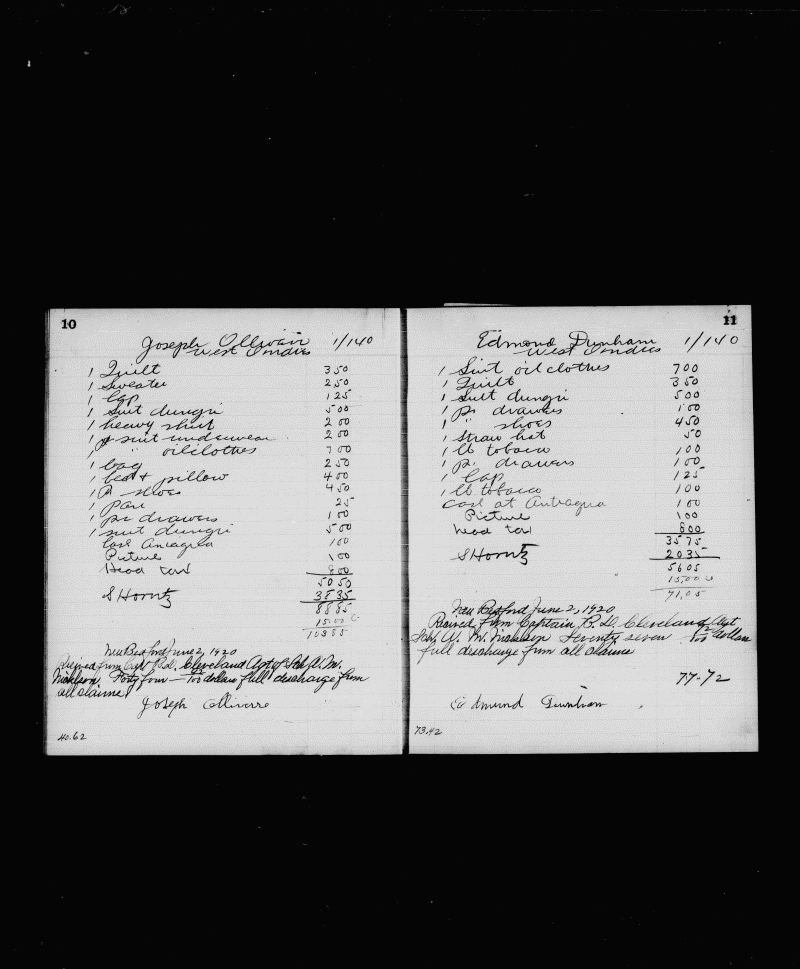 10
Joseph Ollivair 1/140
West Indies
1 Quilt 350
1 Sweater 250
1 Cap 125
1 Suit dungri 500
1 heavy shirt 200
1 suit underwear 200
1 " oilclothes 700
1 bag 250
1 bed & pillow 400
1 P shoes 450
1 pan 25
1 pr drawers 100
1 suit dungri 500
Cash 100
Picture 100
Head tax 800
5050
S Horntz 3835
8885
15.00
10385
New Bedford June 2, 1920
Recived from Capt R.D. Cleveland Agt of Sch A. M.
Nicholson Forty four — 100 dollars full discharge from
all claims
Joseph Olliverre
40.62
11
Edmond Dunham 1/140
West Indies
1 Suit oilclothes 700
1 Quilt 350
1 Suit dungri 500
1 pr drawers 100
1 " shoes 450
1 Straw hat 50
1 lb tobacco 100
1 pr drawers 100
1 Cap 125
1 lb tobacco 100
Cash at Antragua 100
Picture 100
head tax 800
3575
S Horntz 2035
5605
15.00
71,05
New Bedford June 2, 1920
Recived from Captain R. D. Cleveland Agt
Sch. A. M. Nicholson Seventy seven 72/100 dollars
full discharge from all claims
77-72
Edmund Dunham
73.42